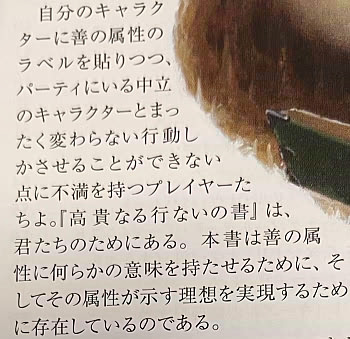 自分のキャラク
ターに善の属性の
ラベルを貼りつつ、
パーティにいる中立
のキャラクターとまっ
たく変わらない行動し
かさせることができない
点に不満を持つプレイヤーた
ちよ。『高貴なる行ないの書』は、
君たちのためにある。本書は善の属
性に何らかの意味を持たせるために、そ
してその属性が示す理想を実現するため
に存在しているのである。